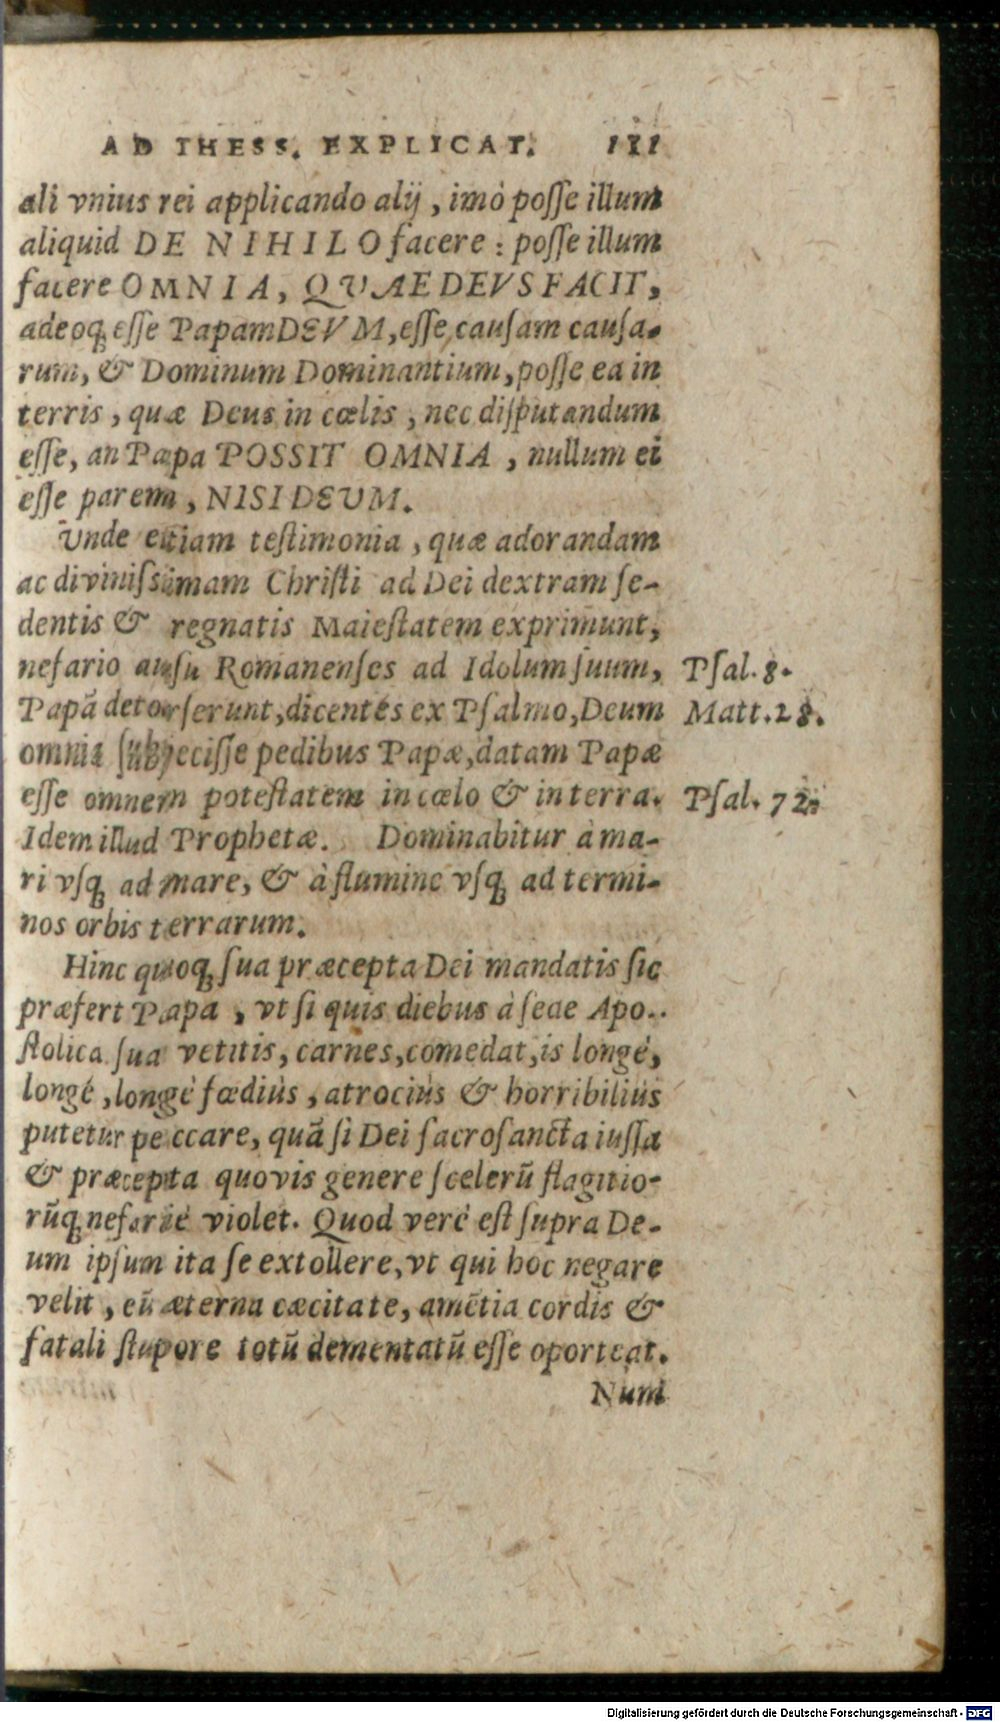 AD THESS. EXPLICAT. 111
ali vnius rei applicando alij, imò posse illum
aliquid DE NIHILO facere: posse illum
facere OMNIA, QVAE DEVS FACIT,
adeoq́ esse Papam DEVM, esse causam causa-
rum, & Dominum Dominantium, posse ea in
terris, quæ Deus in cœlis, nec disputandum
esse, an Papa POSSIT OMNIA, nullum ei
esse parem, NISI DEUM.
Vnde etiam testimonia, quæ adorandam
ac divinissimam Christi ad Dei dextram se-
dentis & regnatis Maiestatem exprimunt,
nefario ausu Romanenses ad Idolum suum, Psal. 8.
Papã detorserunt, dicentes ex Psalmo, Deum Matt. 28.
omnia subjecisse pedibus Papæ, datam Papæ
esse omnem potestatem in cœlo & in terra. Psal. 72.
Idem illud Prophetæ. Dominabitur à ma-
ri vsq́ ad mare, & à flumine vsq́ ad termi-
nos orbis terrarum.
Hinc quoq́ sua præcepta Dei mandatis sic
præfert Papa, vt si quis diebus à sede Apo-
stolica sua vetitis, carnes, comedat, is longé,
longé, longé fœdiùs, atrociùs & horribiliùs
putetur peccare, quã si Dei sacrosancta iussa
& præcepta quovis genere scelerũ flagitio-
rũq́ nefarié violet. Quod veré est supra De-
um ipsum ita se extollere, vt qui hoc negare
velit, eũ æterna cæcitate, amẽtia cordis &
fatali stupore totũ dementatũ esse oporteat.
Num
Digitalisierung gefördert durch die Deutsche Forschungsgemeinschaft - DFG